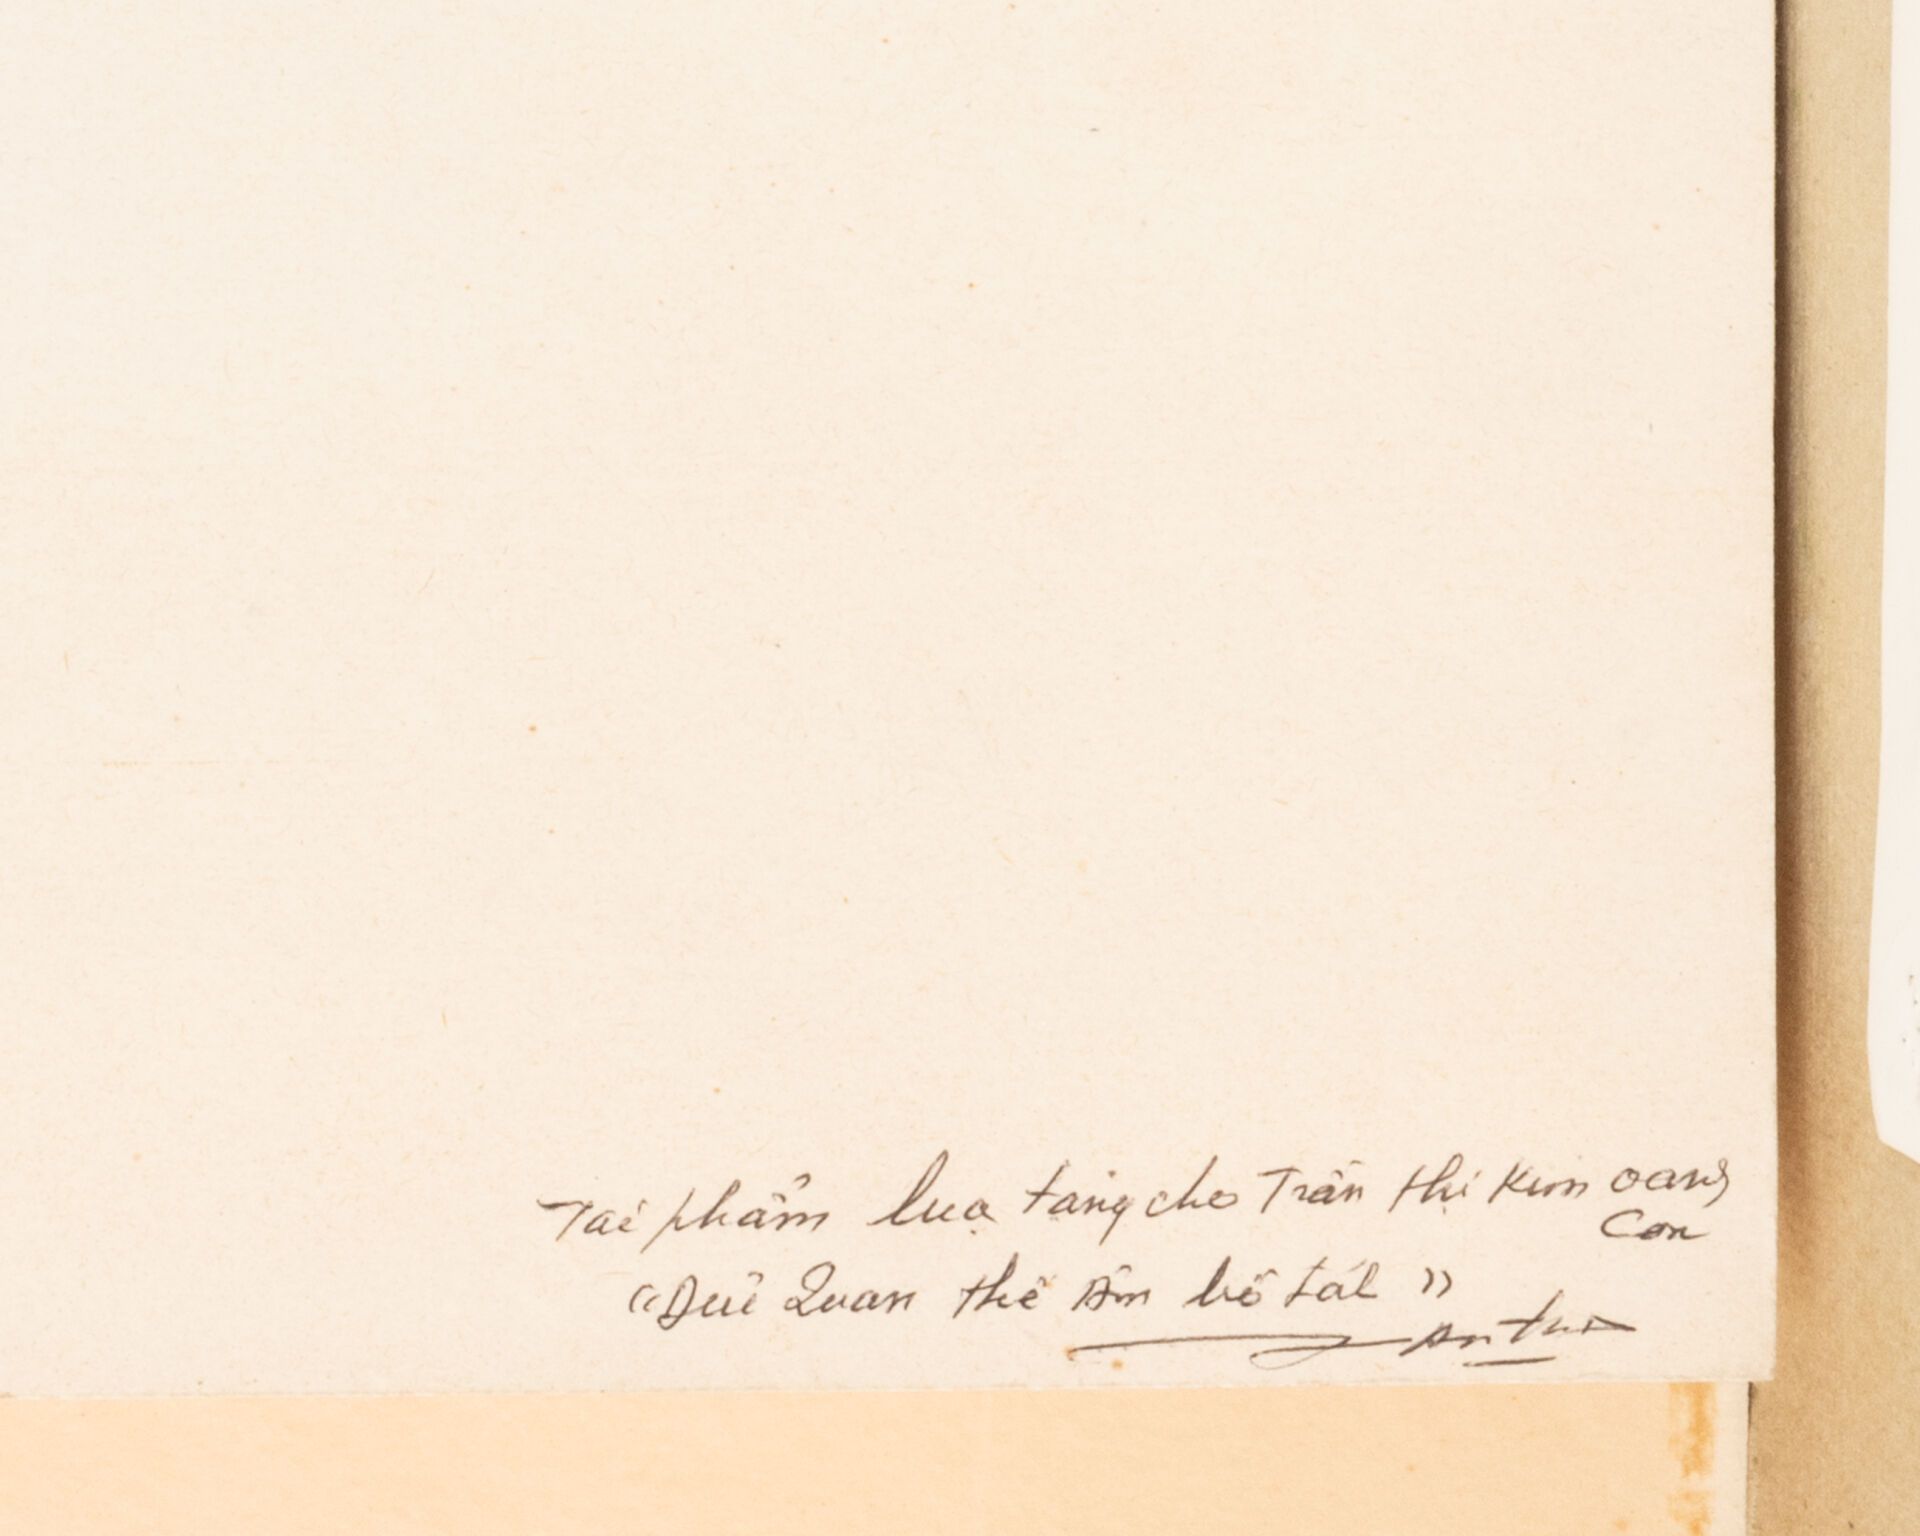 Tác phẩm lụa tặng cho Trần thị Kim oanh
Con
"Đức Quan thế Âm bồ tát"